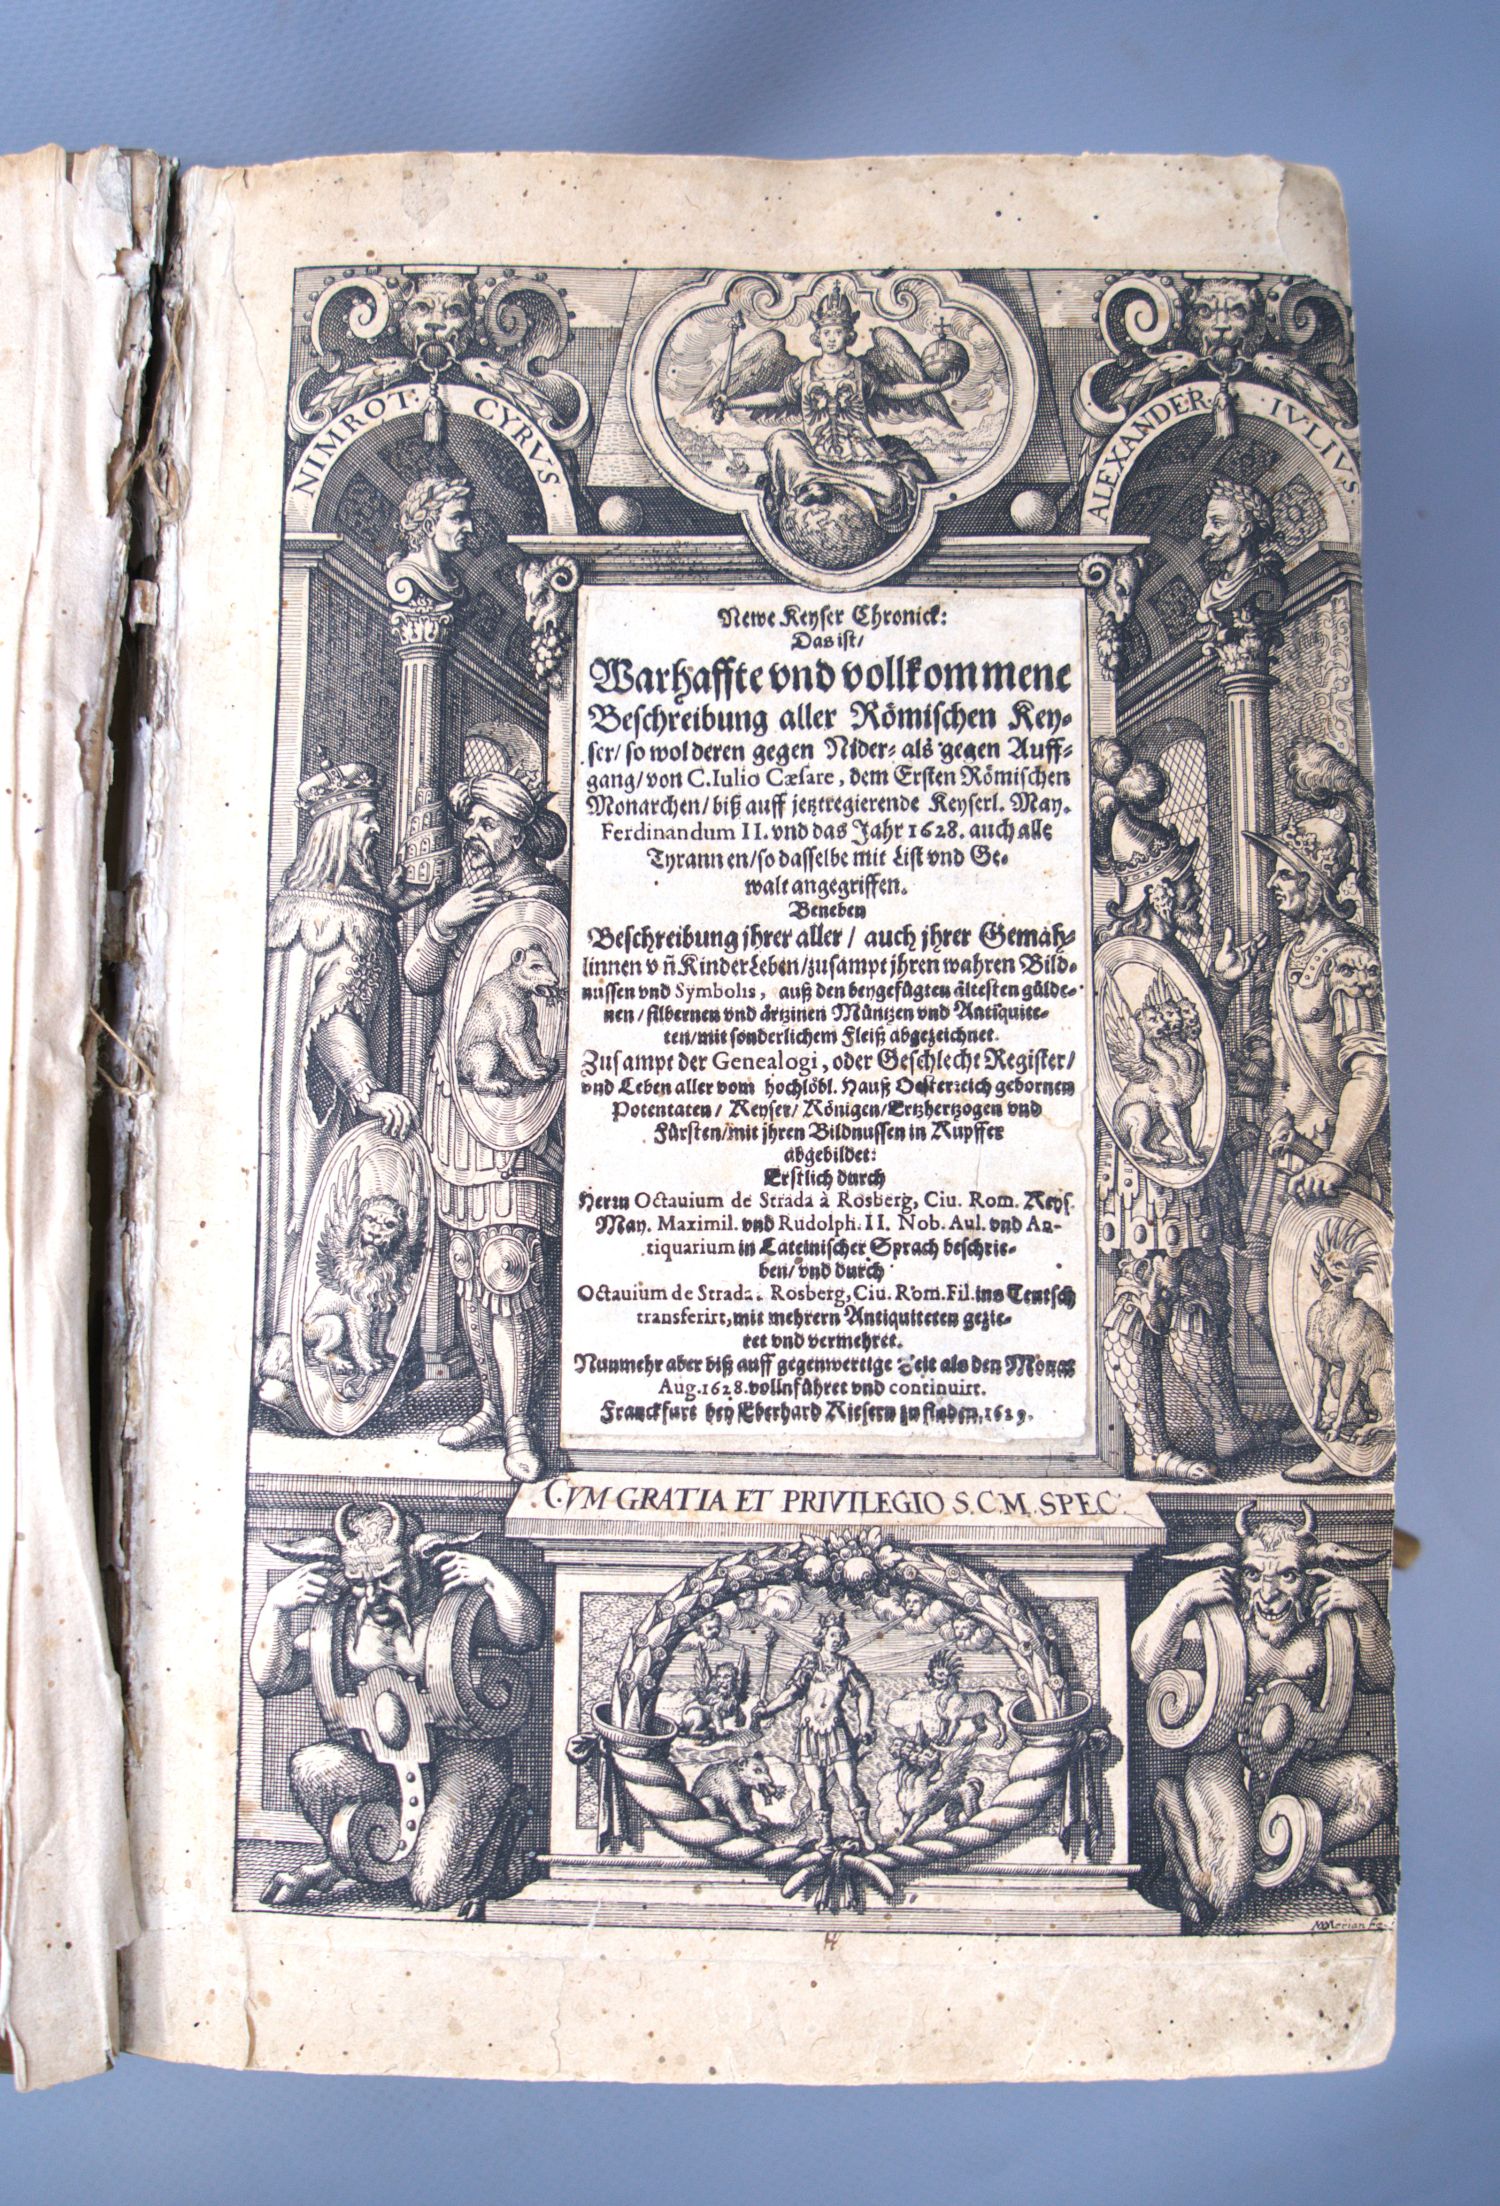 NIMROT. CYRVS.
ALEXANDER. IVLIVS
Newe Keyser Chronick:
Das ist/
Warhaffte vnd vollkommene
Beschreibung aller Römischen Key-
ser/ so wol deren gegen Nider- als gegen Auff-
gang/ von C. Iulio Cæsare, dem Ersten Römischen
Monarchen/ biß auff jetztregierende Keyserl. May.
Ferdinandum II. vnd das Jahr 1628. auch alle
Tyrannen/ so dasselbe mit List vnd Ge-
walt angegriffen.
Beneben
Beschreibung jhrer aller/ auch jhrer Gemäh-
linnen vñ Kinder Leben/ zusampt jhren wahren Bild-
nussen vnd Symbolis, auß den beygefügten ältesten gülde-
nen/ silbernen vnd ärtzinen Müntzen vnd Antiquite-
ten/ mit sonderlichem Fleiß abgezeichnet.
Zusampt der Genealogi, oder Geschlecht Register/
vnd Leben aller vom hochlöbl. Hauß Oesterreich gebornen
Potentaten/ Keyser/ Königen/ Ertzhertzogen vnd
Fürsten/ mit jhren Bildnussen in Kupffer
abgebildet:
Erstlich durch
Herrn Octauium de Strada à Rosberg, Ciu. Rom. Keys.
May. Maximil. vnd Rudolph. II. Nob. Aul. vnd An-
tiquarium in Lateinischer Sprach beschrie-
ben/ vnd durch
Octauium de Strada à Rosberg, Ciu. Rom. Fil. ins Teutsch
transferirt, mit mehrern Antiquiteten gezie-
ret vnd vermehret.
Nunmehr aber biß auff gegenwertige Zeit als den Monat
Aug. 1628. vollnführet vnd continuirt.
Franckfurt bey Eberhard Kiesern zu finden, 1629.
CVM GRATIA ET PRIVILEGIO S. C. M. SPEC.
MMerian Feci